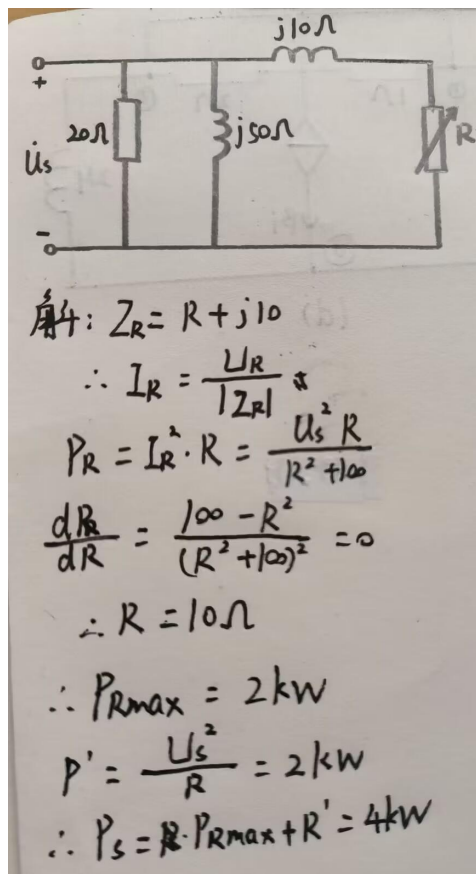 j10Ω
+
20Ω
j50Ω
R
U̇s
-
解: Z_R = R + j10
∴ I_R = U_R / |Z_R|
P_R = I_R²·R = U_s² R / R² + 100
dP_R / dR = 100 - R² / (R² + 100)² = 0
∴ R = 10Ω
∴ P_Rmax = 2kW
P' = U_s² / R = 2kW
∴ P_s = P_Rmax + R' = 4kW